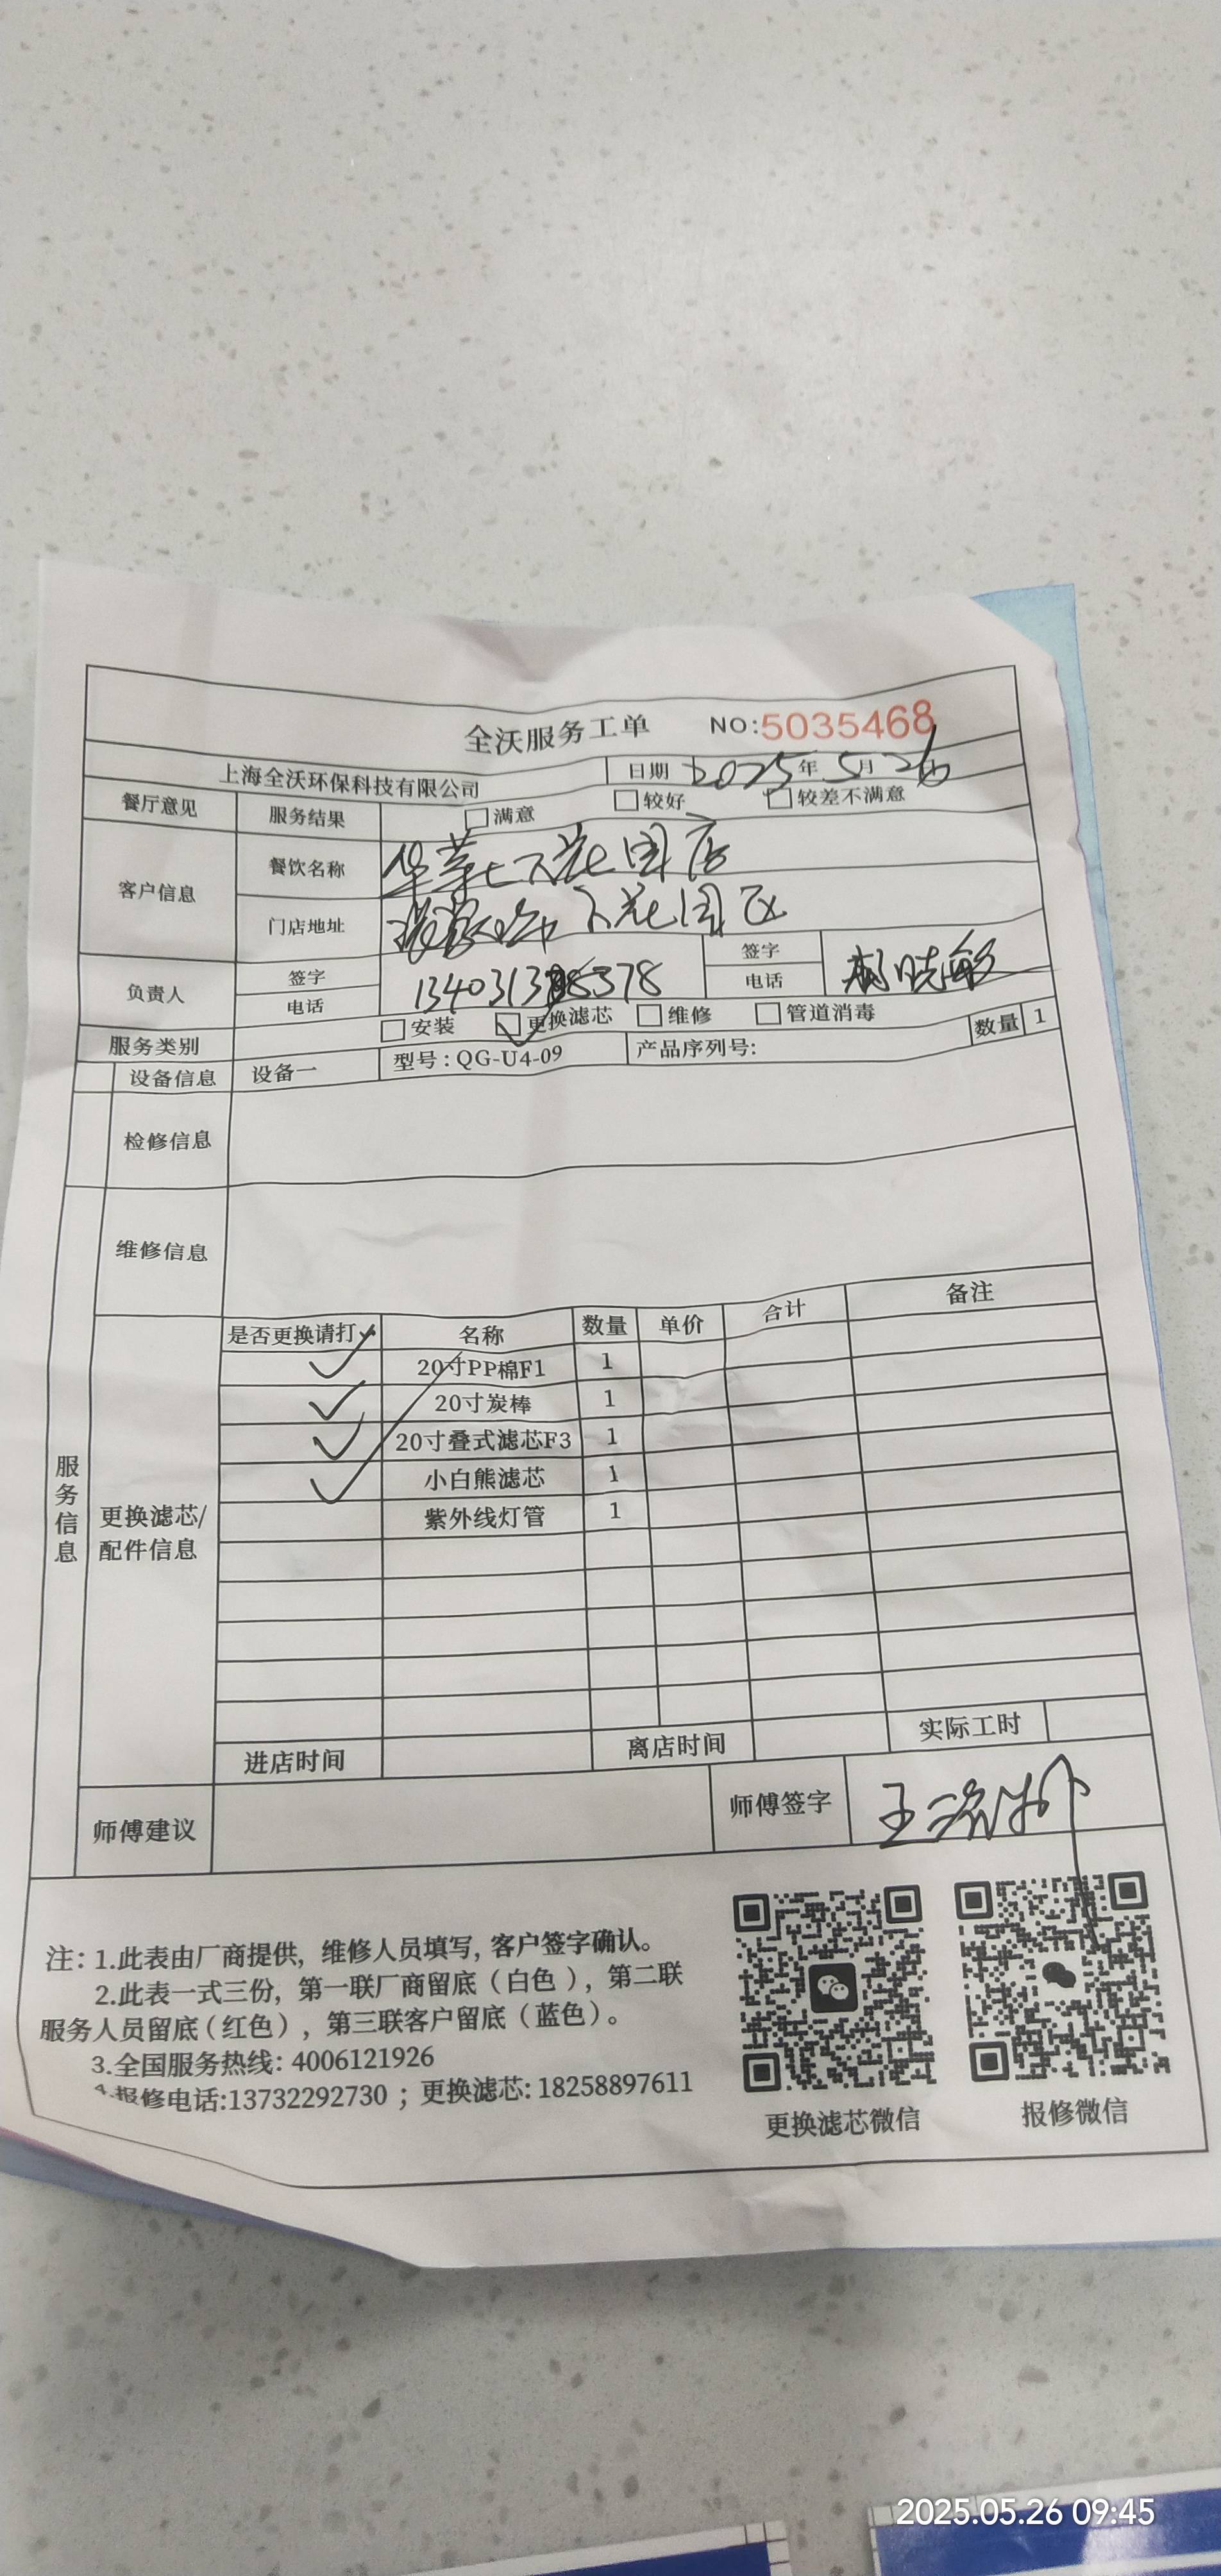 全沃服务工单 NO:5035468
上海全沃环保科技有限公司 日期 2025年5月26
餐厅意见 服务结果 满意 较好 较差不满意
客户信息 餐饮名称 华莱士下花园店
门店地址 张家口市下花园区
负责人 签字 签字
电话 电话
服务类别 安装 更换滤芯 维修 管道消毒
设备信息 设备一 型号：QG-U4-09 产品序列号： 数量 1
检修信息
维修信息
服务信息
更换滤芯/
配件信息
是否更换请打✓ 名称 数量 单价 合计 备注
✓ 20寸PP棉F1 1
✓ 20寸炭棒 1
✓ 20寸叠式滤芯F3 1
✓ 小白熊滤芯 1
紫外线灯管 1
进店时间 离店时间 实际工时
师傅建议 师傅签字
注：1.此表由厂商提供，维修人员填写，客户签字确认。
2.此表一式三份，第一联厂商留底（白色），第二联
服务人员留底（红色），第三联客户留底（蓝色）。
3.全国服务热线：4006121926
4.报修电话:13732292730；更换滤芯：18258897611
更换滤芯微信 报修微信
2025.05.26 09:45